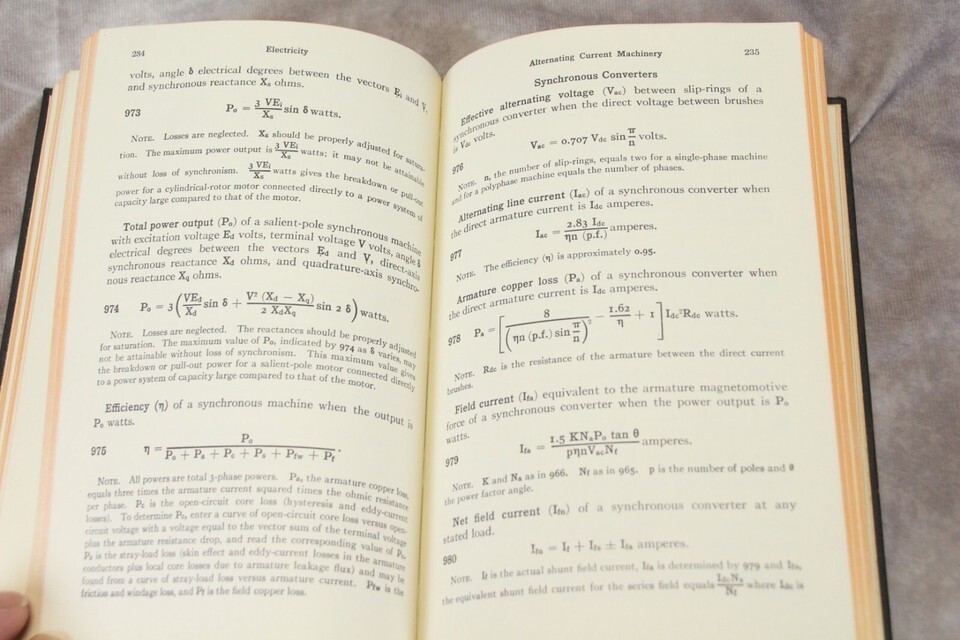 284
Electricity
volts, angle δ electrical degrees between the vectors Eᵢ and V,
and synchronous reactance Xₛ ohms.
973 Pₒ = 3 VEᵢ/Xₛ sin δ watts.
NOTE. Losses are neglected. Xₛ should be properly adjusted for satura-
tion. The maximum power output is 3 VEᵢ/Xₛ watts; it may not be attainable
without loss of synchronism. 3 VEᵢ/Xₛ watts gives the breakdown or pull-out
power for a cylindrical-rotor motor connected directly to a power system of
capacity large compared to that of the motor.
Total power output (Pₒ) of a salient-pole synchronous machine
with excitation voltage E_d volts, terminal voltage V volts, angle δ
electrical degrees between the vectors E_d and V, direct-axis
synchronous reactance X_d ohms, and quadrature-axis synchro-
nous reactance X_q ohms.
974 Pₒ = 3 (VE_d/X_d sin δ + V² (X_d − X_q)/2 X_dX_q sin 2 δ) watts.
NOTE. Losses are neglected. The reactances should be properly adjusted
for saturation. The maximum value of Pₒ, indicated by 974 as δ varies, may
not be attainable without loss of synchronism. This maximum value gives
the breakdown or pull-out power for a salient-pole motor connected directly
to a power system of capacity large compared to that of the motor.
Efficiency (η) of a synchronous machine when the output is
Pₒ watts.
975 η = Pₒ/(Pₒ + Pₐ + P_c + Pₛ + P_fw + P_f).
NOTE. All powers are total 3-phase powers. Pₐ, the armature copper loss,
equals three times the armature current squared times the ohmic resistance
per phase. P_c is the open-circuit core loss (hysteresis and eddy-current
losses). To determine P_c, enter a curve of open-circuit core loss versus open-
circuit voltage with a voltage equal to the vector sum of the terminal voltage
plus the armature resistance drop, and read the corresponding value of P_c.
Pₛ is the stray-load loss (skin effect and eddy-current losses in the armature
conductors plus local core losses due to armature leakage flux) and may be
found from a curve of stray-load loss versus armature current. P_fw is the
friction and windage loss, and P_f is the field copper loss.
Alternating Current Machinery
235
Synchronous Converters
Effective alternating voltage (V_ac) between slip-rings of a
synchronous converter when the direct voltage between brushes
is V_dc volts.
976 V_ac = 0.707 V_dc sin π/n volts.
NOTE. n, the number of slip-rings, equals two for a single-phase machine
and for a polyphase machine equals the number of phases.
Alternating line current (I_ac) of a synchronous converter when
the direct armature current is I_dc amperes.
977 I_ac = 2.83 I_dc/ηn (p.f.) amperes.
NOTE. The efficiency (η) is approximately 0.95.
Armature copper loss (Pₐ) of a synchronous converter when
the direct armature current is I_dc amperes.
978 Pₐ = [8/(ηn (p.f.) sin π/n)² − 1.62/η + 1] I_dc²R_dc watts.
NOTE. R_dc is the resistance of the armature between the direct current
brushes.
Field current (I_fa) equivalent to the armature magnetomotive
force of a synchronous converter when the power output is Pₒ
watts.
979 I_fa = 1.5 KNₐPₒ tan θ/pηnV_acN_f amperes.
NOTE. K and Nₐ as in 966. N_f as in 965. p is the number of poles and θ
the power factor angle.
Net field current (I_fn) of a synchronous converter at any
stated load.
980 I_fn = I_f + I_fs ± I_fa amperes.
NOTE. I_f is the actual shunt field current, I_fa is determined by 979 and I_fs,
the equivalent shunt field current for the series field equals I_dcNₛ/N_f where I_dc is